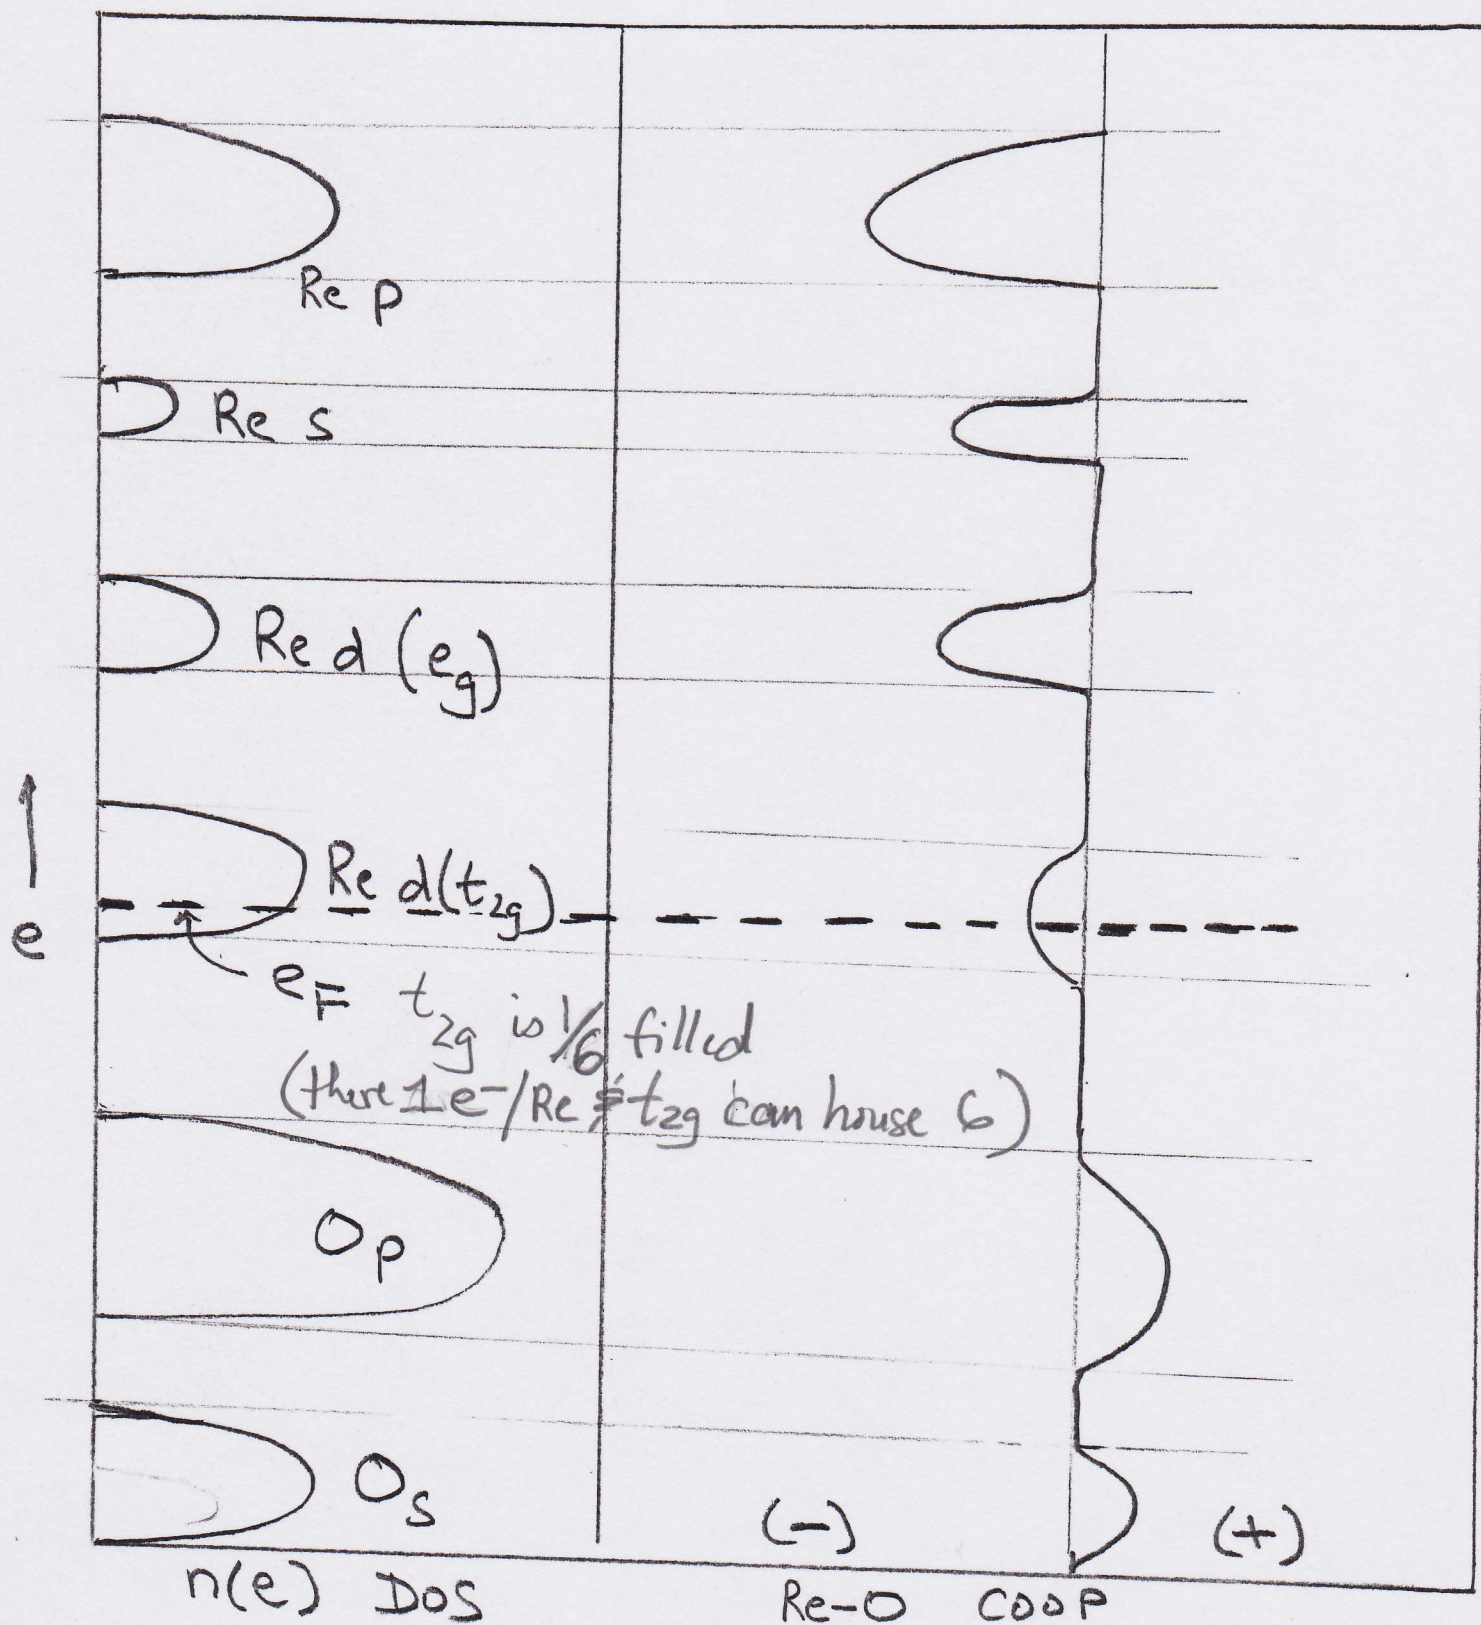 Re p
Re s
Re d (eg)
Re d(t2g)
↑
e
eF
t2g is 1/6 filled
(there 1 e⁻/Re & t2g can house 6)
Op
Os
(-)
(+)
n(e) DOS
Re-O COOP